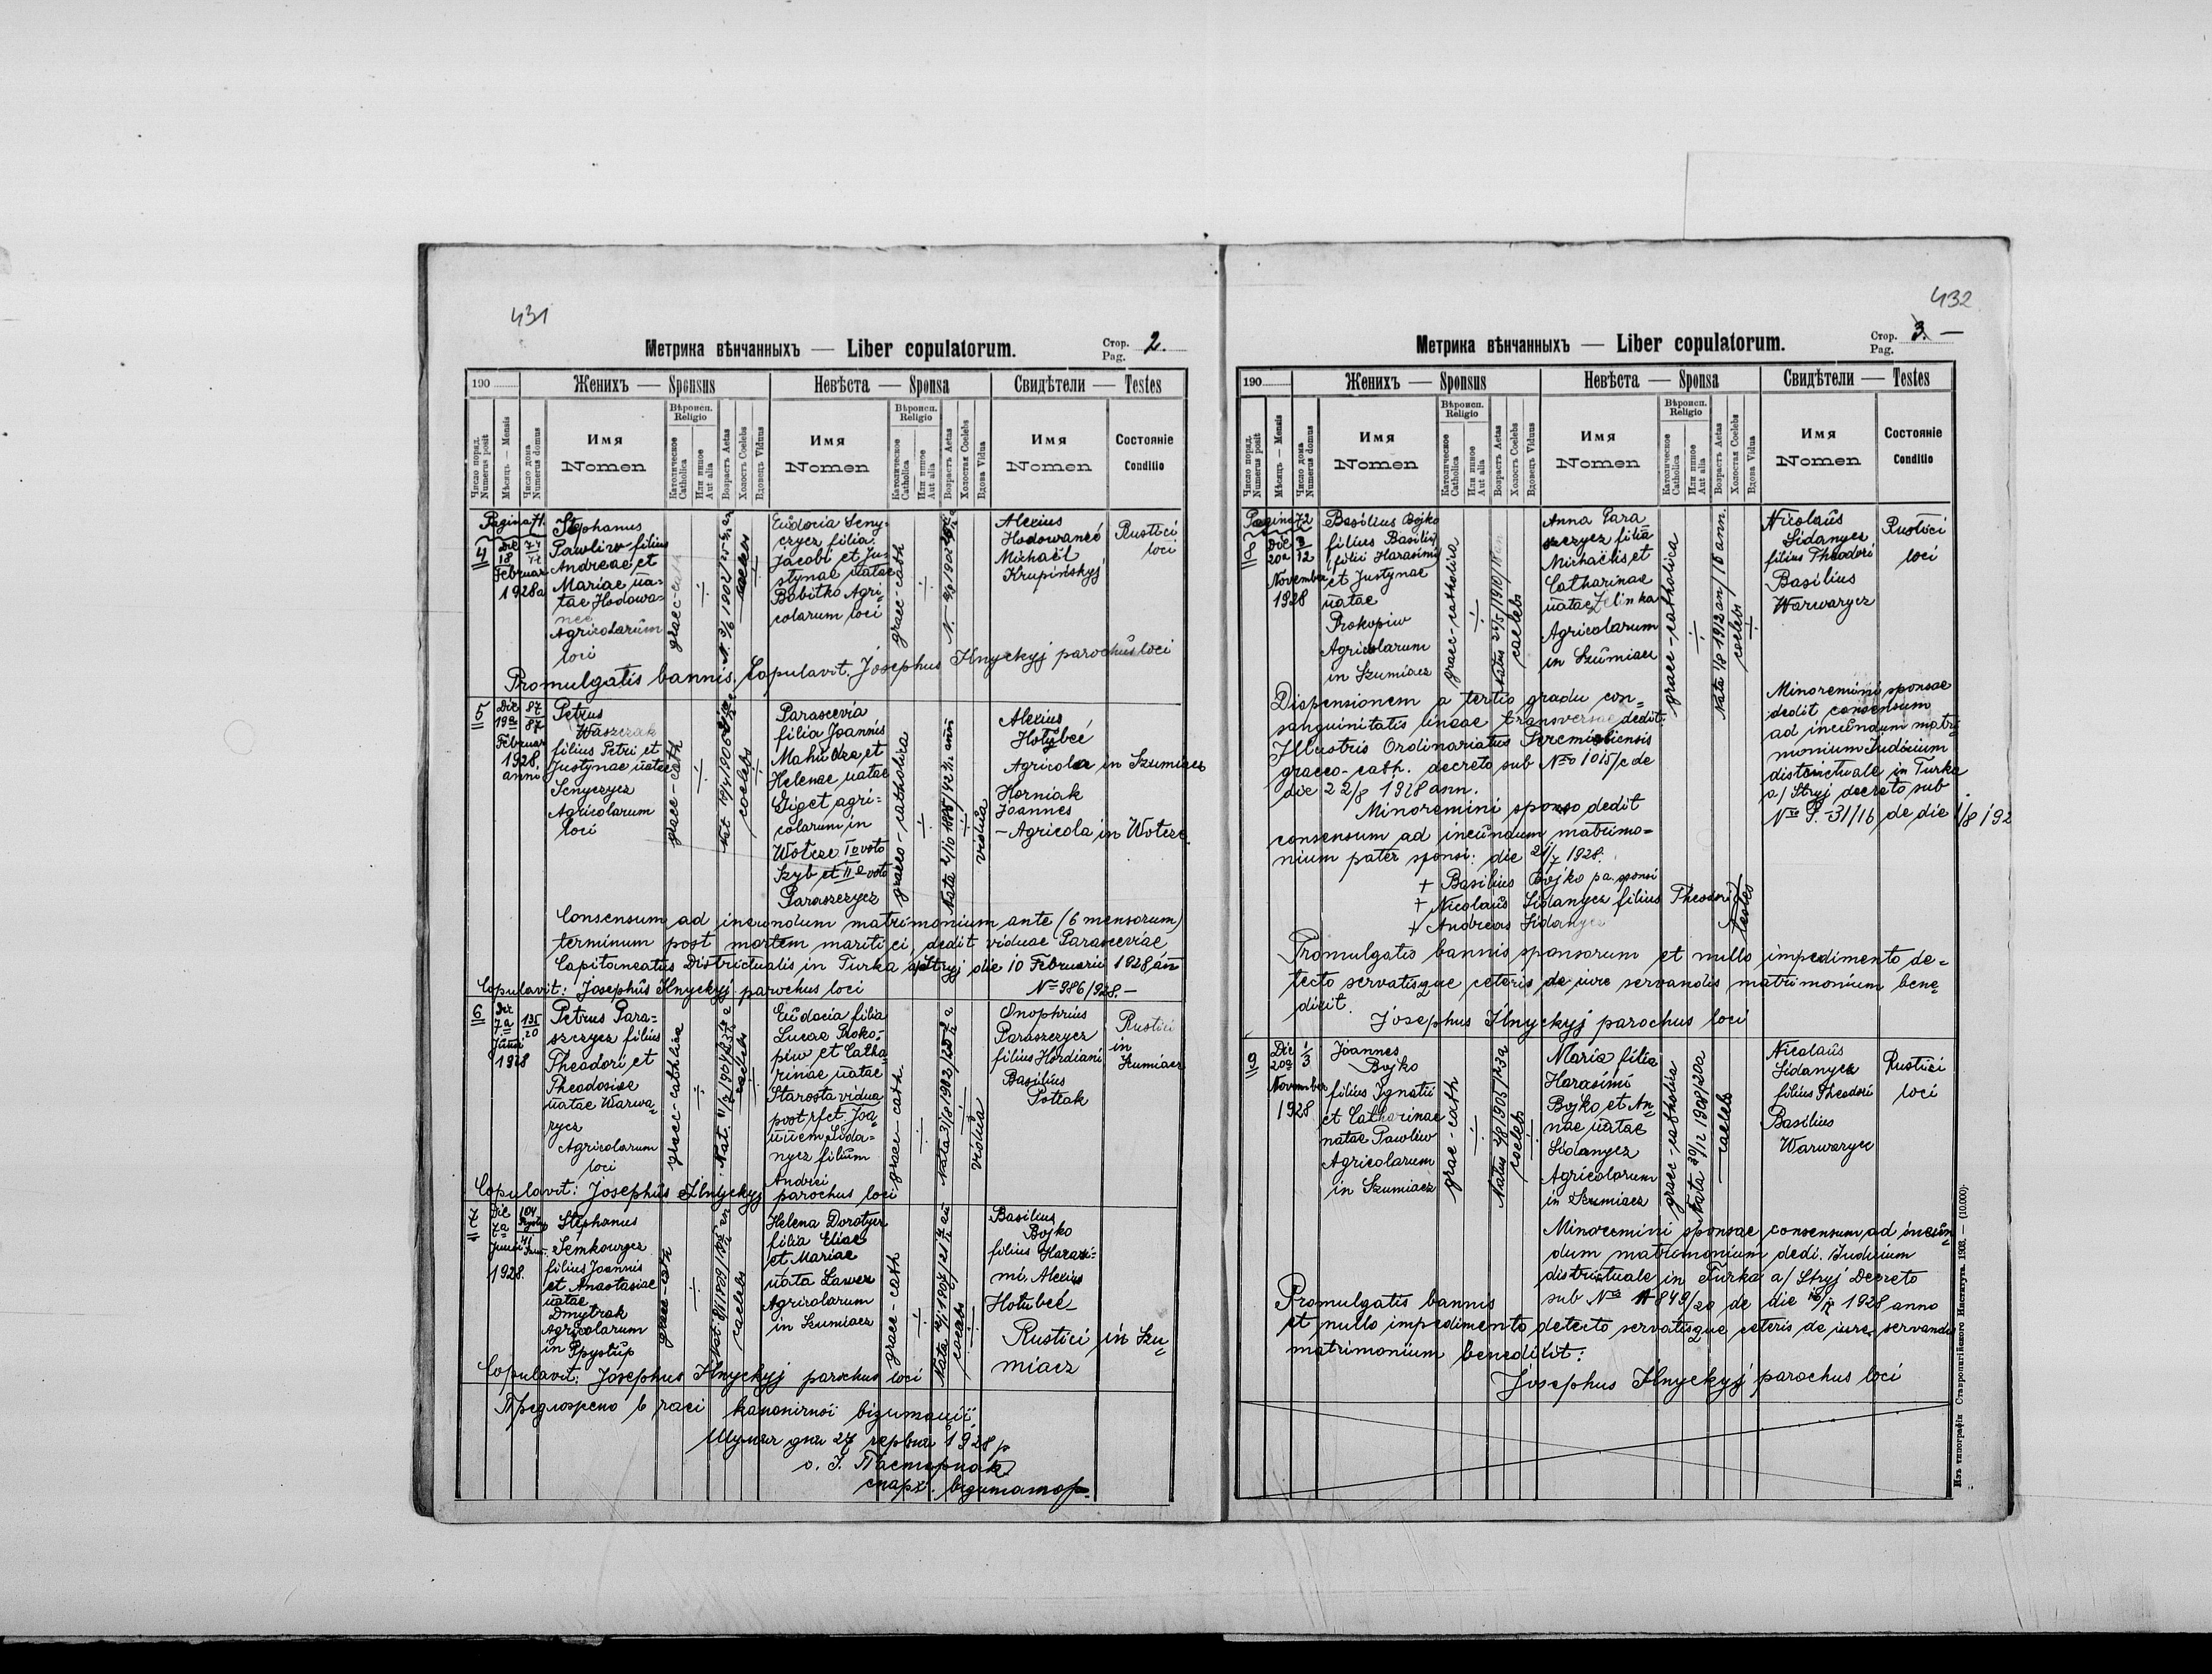 431
Метрика вѣнчанныхъ — Liber copulatorum.
Стор. Pag. 2.
190
Женихъ — Sponsus
Невѣста — Sponsa
Свидѣтели — Testes
Число поряд. Numerus posit
Мѣсяцъ — Mensis
Число дома Numerus domus
Имя
Nomen
Вѣроисп. Religio
Католическое Catholica
Или иное Aut alia
Возрастъ Aetas
Холостъ Coelebs
Вдовецъ Viduus
Имя
Nomen
Вѣроисп. Religio
Католическое Catholica
Или иное Aut alia
Возрастъ Aetas
Холостая Coelebs
Вдова Vidua
Имя
Nomen
Состояніе
Conditio
Pagina 71.
4
Die
18
Februar
1928
Stephanus
Pawliw filius
Andreae et
Mariae na-
tae Hodowa-
nec
Agricolarum
loci
graec-cath
caelebs
Eudocia Seny-
czycz filia
Jacobi et Ju-
stynae natae
Bobitko Agri-
colarum loci
graec-cath
Alexius
Hodowaneć
Michaël
Krupińskyj
Rustici
loci
Promulgatis bannis. Copulavit. Josephus Ilnyckyj parochus loci
5
Die
19a
Februar
1928
anni
87
87
Petrus
Waszczak
filius Petri et
Justynae natae
Senyczycz
Agricolarum
loci
graec-cath
coelebs
Parascevia
filia Joannis
et
Helenae natae
Giget agri-
colarum in
Wotcze Io voto
Szyb et IIo voto
Paraszczycz
graeco-catholica
vidua
Alexius
Hotubeć
Agricola in Szumiacz
Horniak
Joannes
- Agricola in Wotcze.
Consensum ad ineundum matrimonium ante (6 mensorum)
terminum post mortem mariti ei, dedit viduae Parasceviae
Capitaneatus Districtualis in Turka a/Stryj die 10 Februarii 1928 an
Copulavit: Josephus Ilnyckyj parochus loci
No 986/928.-
6
Die
7a
Junii
1928
135
20
Petrus Para-
szczycz filius
Theodori et
Theodosiae
natae Warwa-
rycz
Agricolarum
loci
graec-catholica
caelebs
Eudocia filia
Lucae Proko-
piw et Catha-
rinae natae
Starosta vidua
post Joa-
nnem Sida-
nycz filium
Andrei
graec-cath.
Nata 31/8 1902
vidua
Onophrius
Paraszczycz
filius Hordiani
Basilius
Potiak
Rustici
in
Szumiacz
Copulavit: Josephus Ilnyckyj parochus loci
7
Die
7a
Junii
1928.
Stephanus
Semkowycz
filius Joannis
et Anastasiae
natae
Dmytrak
Agricolarum
in Prystup
graec-cath
caelebs
Helena Dorotycz
filia Eliae
et Mariae
nata Lawer
Agricolarum
in Szumiacz
graec-cath
Basilius
Bojko
filius Harasi-
mi, Alexius
Hotubeć
Rustici in Szu-
miacz
Copulavit: Josephus Ilnyckyj parochus loci
Предложено в часі канонічної візитації,
Шумяч дня 27 червня 1928 р
о. І. Пастернак
епарх. візитатор.
432
Метрика вѣнчанныхъ — Liber copulatorum.
Стор. Pag. 3. —
190
Женихъ — Sponsus
Невѣста — Sponsa
Свидѣтели — Testes
Число поряд. Numerus posit
Мѣсяцъ — Mensis
Число дома Numerus domus
Имя
Nomen
Вѣроисп. Religio
Католическое Catholica
Или иное Aut alia
Возрастъ Aetas
Холостъ Coelebs
Вдовецъ Viduus
Имя
Nomen
Вѣроисп. Religio
Католическое Catholica
Или иное Aut alia
Возрастъ Aetas
Холостая Coelebs
Вдова Vidua
Имя
Nomen
Состояніе
Conditio
Pagina 72
8
Die
20a
November
1928
Basilius Bojko
filius Basilii
filii Harasimi
et Justynae
natae
Prokopiw
Agricolarum
in Szumiacz
graec-catholica
caelebs
Anna Para
szczycz filia
Michaëlis et
Catharinae
natae Zelinka
Agricolarum
in Szumiacz
graec-catholica
Nata 1/8 1912 an/ 16 ann.
coelebs
Nicolaus
Sidanycz
filius Theodori
Basilius
Warwarycz
Rustici
loci
Dispensionem a tertio gradu con-
sanguinitatis lineae transversae dedit
Illustris Ordinariatus Peremisliensis
graeco-cath. decreto sub Nro 1015/c de
die 22/8 1928 ann.
Minorenini sponso dedit
consensum ad ineundum matrimo-
nium pater sponsi: die 21/7 1928.
+ Basilius Bojko pa. sponsi
+ Nicolaus Sidanycz filius Theodori
+ Andreas Sidanycz
testes
Minorenini sponsae
dedit consensum
ad ineundum matri
monium Judicium
districtuale in Turka
a/ Stryj decreto sub
Nro P.-31/16 de die 1/8 192
Promulgatis bannis sponsorum et nullo impedimento de-
tecto servatisque ceteris de iure servandis matrimonium bene-
dixit.
Josephus Ilnyckyj parochus loci
9
Die
20a
November
1928
1
3
Joannes
Bojko
filius Ignatii
et Catharinae
natae Pawliw
Agricolarum
in Szumiacz
graec-cath
coelebs
Maria filia
Harasimi
Bojko et An-
nae natae
Sidanycz
Agricolarum
in Szumiacz
graec-catholica
Nata 30/12 1908/20a
caelebs
Nicolaus
Sidanycz
filius Theodori
Basilius
Warwarycz
Rustici
loci
Minorenini sponsae consensum ad ineun-
dum matrimonium dedi. Judicium
districtuale in Turka a/ Stryj Decreto
sub de die 1928 anno
Promulgatis bannis
et nullo impedimento detecto servatisque ceteris de iure servandis
matrimonium benedixit:
Josephus Ilnyckyj parochus loci
Изъ типографіи Ставропигійского Института 1903. — (10.000).